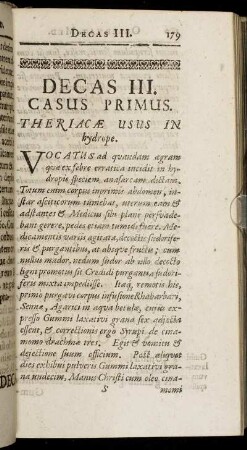 DECAS III. 179
DECAS III.
CASUS PRIMUS.
THERIACÆ USUS IN
hydrope.
VOCATUS ad quandam ægram
quæ ex febre erratica incidit in hy-
dropis speciem, anasarcam dictam.
Totum enim corpus imprimis abdomen, in-
star ascitricorum tumebat, uterum eam &
adstantes & Medicum sibi plane persuade-
bant gerere, pedes etiam tumidi fuere. Me-
dicamentis variis agitata, decoctis sudorife-
ris & purgantibus, at absque fructu; cum
nullus mador, nedum sudor ab ullo decocto
ligni promotus sit Credidi purgantia sudori-
feris mixta impedisse. Itaq; remotis his,
primo purgavi corpus infusione Rhabarbari,
Sennæ, Agarici in aqua betulæ, cujus ex-
presso Gummi laxativi grana sex adjecta
essent, & correctionis ergo Syrupi de cina-
momo drachmæ tres. Egit & vomitu &
dejectione suum officium. Post aliquot
dies exhibui pulveris Gummi laxativi gra-
na undecim, Manus Christi cum oleo cina-
S momi